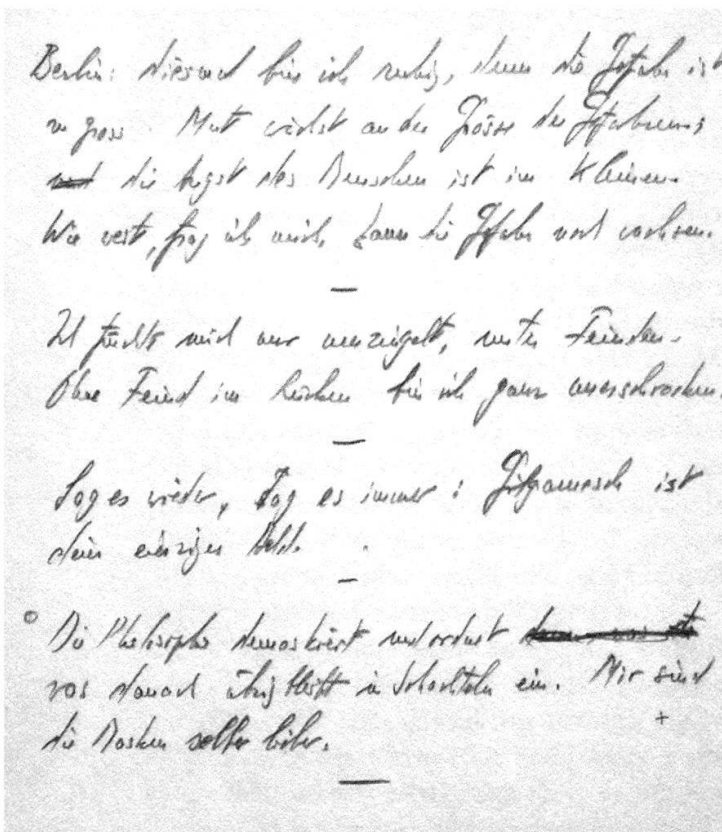 Berlin: diesmal bin ich ruhig, denn die Gefahr ist
zu gross. Mut wächst an der Grösse der Gefahren;
die Angst des Menschen ist im Kleinen.
Wie weit, frag ich mich, kann die Gefahr noch wachsen.
Ich fürchte mich nur umzingelt, unter Feinden.
Ohne Feind im Rücken bin ich ganz unerschrocken.
Sag es wieder, sag es immer: Gilgamesch ist
dein einziger Held.
Die Philosophie demaskiert und ordnet
was danach übrig bleibt in Schachteln ein. Mir sind
die Masken selber lieber. +